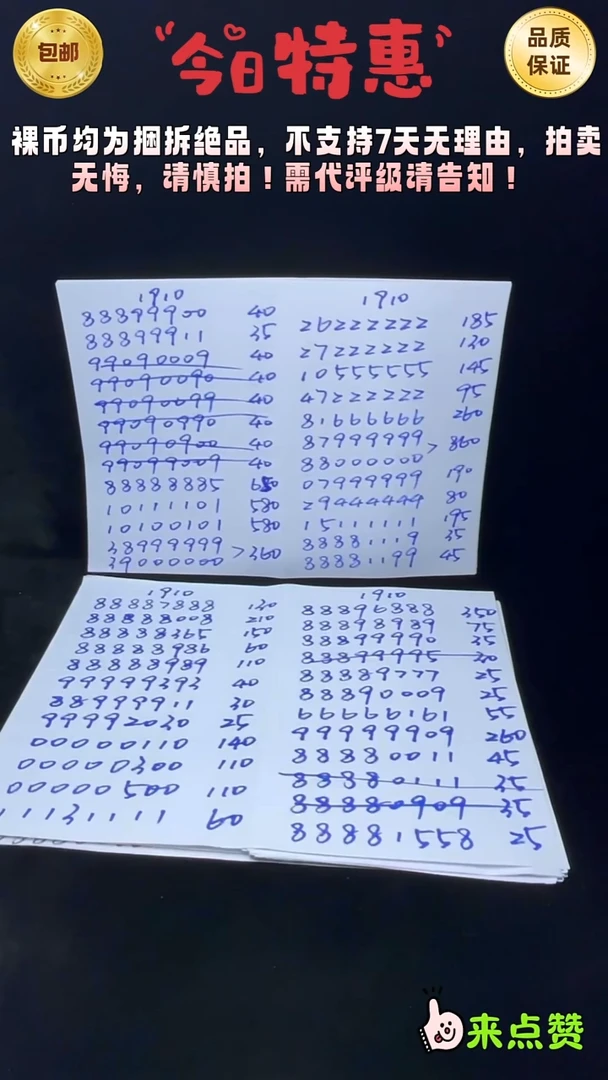 包邮
今日特惠
品质
保证
裸币均为捆拆绝品，不支持7天无理由，拍卖
无悔，请慎拍！需代评级请告知！
1910
88899900 40
88899911 35
99090009 40
99090090 40
99090099 40
99090990 40
99090900 40
99099009 40
88888885 650
10111101 580
10100101 580
38999999
39000000 >360
1910
26222222 185
27222222 130
10555555 145
47222222 95
81666666 260
87999999
88000000 > 860
07999999 190
29444444 80
15111111 195
88881119 35
88881199 45
1910
88887888 130
88888008 210
88888365 150
88888986 60
88888989 110
99999393 40
88999911 30
99992030 25
00000110 140
00000300 110
00000500 110
11131111 60
1910
88896888 350
88898989 75
88899990 35
88899995 30
88889777 25
88890009 25
66666161 55
99999909 260
88880011 45
88880111 35
88880909 35
88881558 25
来点赞